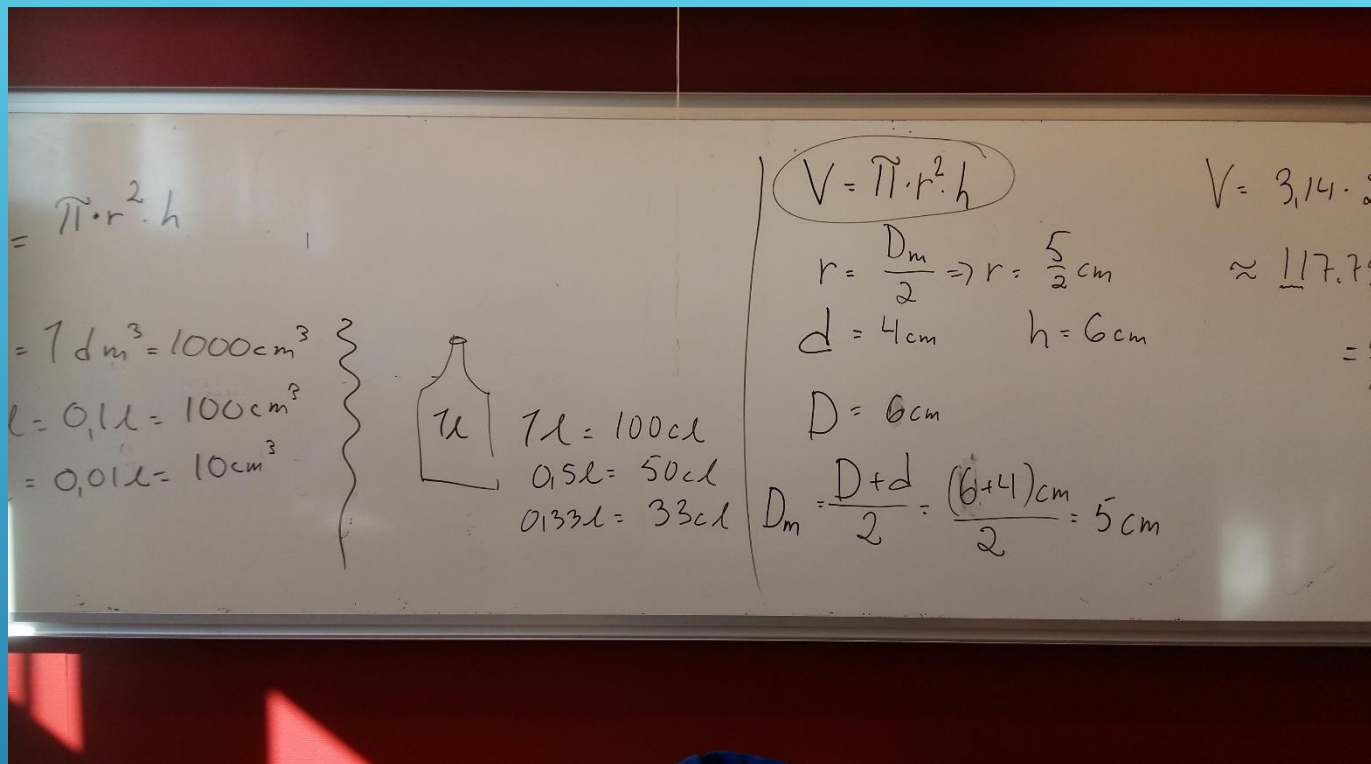 = π·r²·h
= 1dm³ = 1000cm³
l = 0,1l = 100cm³
= 0,01l = 10cm³
1l
1l = 100cl
0,5l = 50cl
0,133l = 33cl
V = π·r²·h
r = Dm/2 => r = 5/2 cm
d = 4cm h = 6cm
D = 6cm
Dm = D+d/2 = (6+4)cm/2 = 5cm
V = 3,14·2
≈ 117.7
=